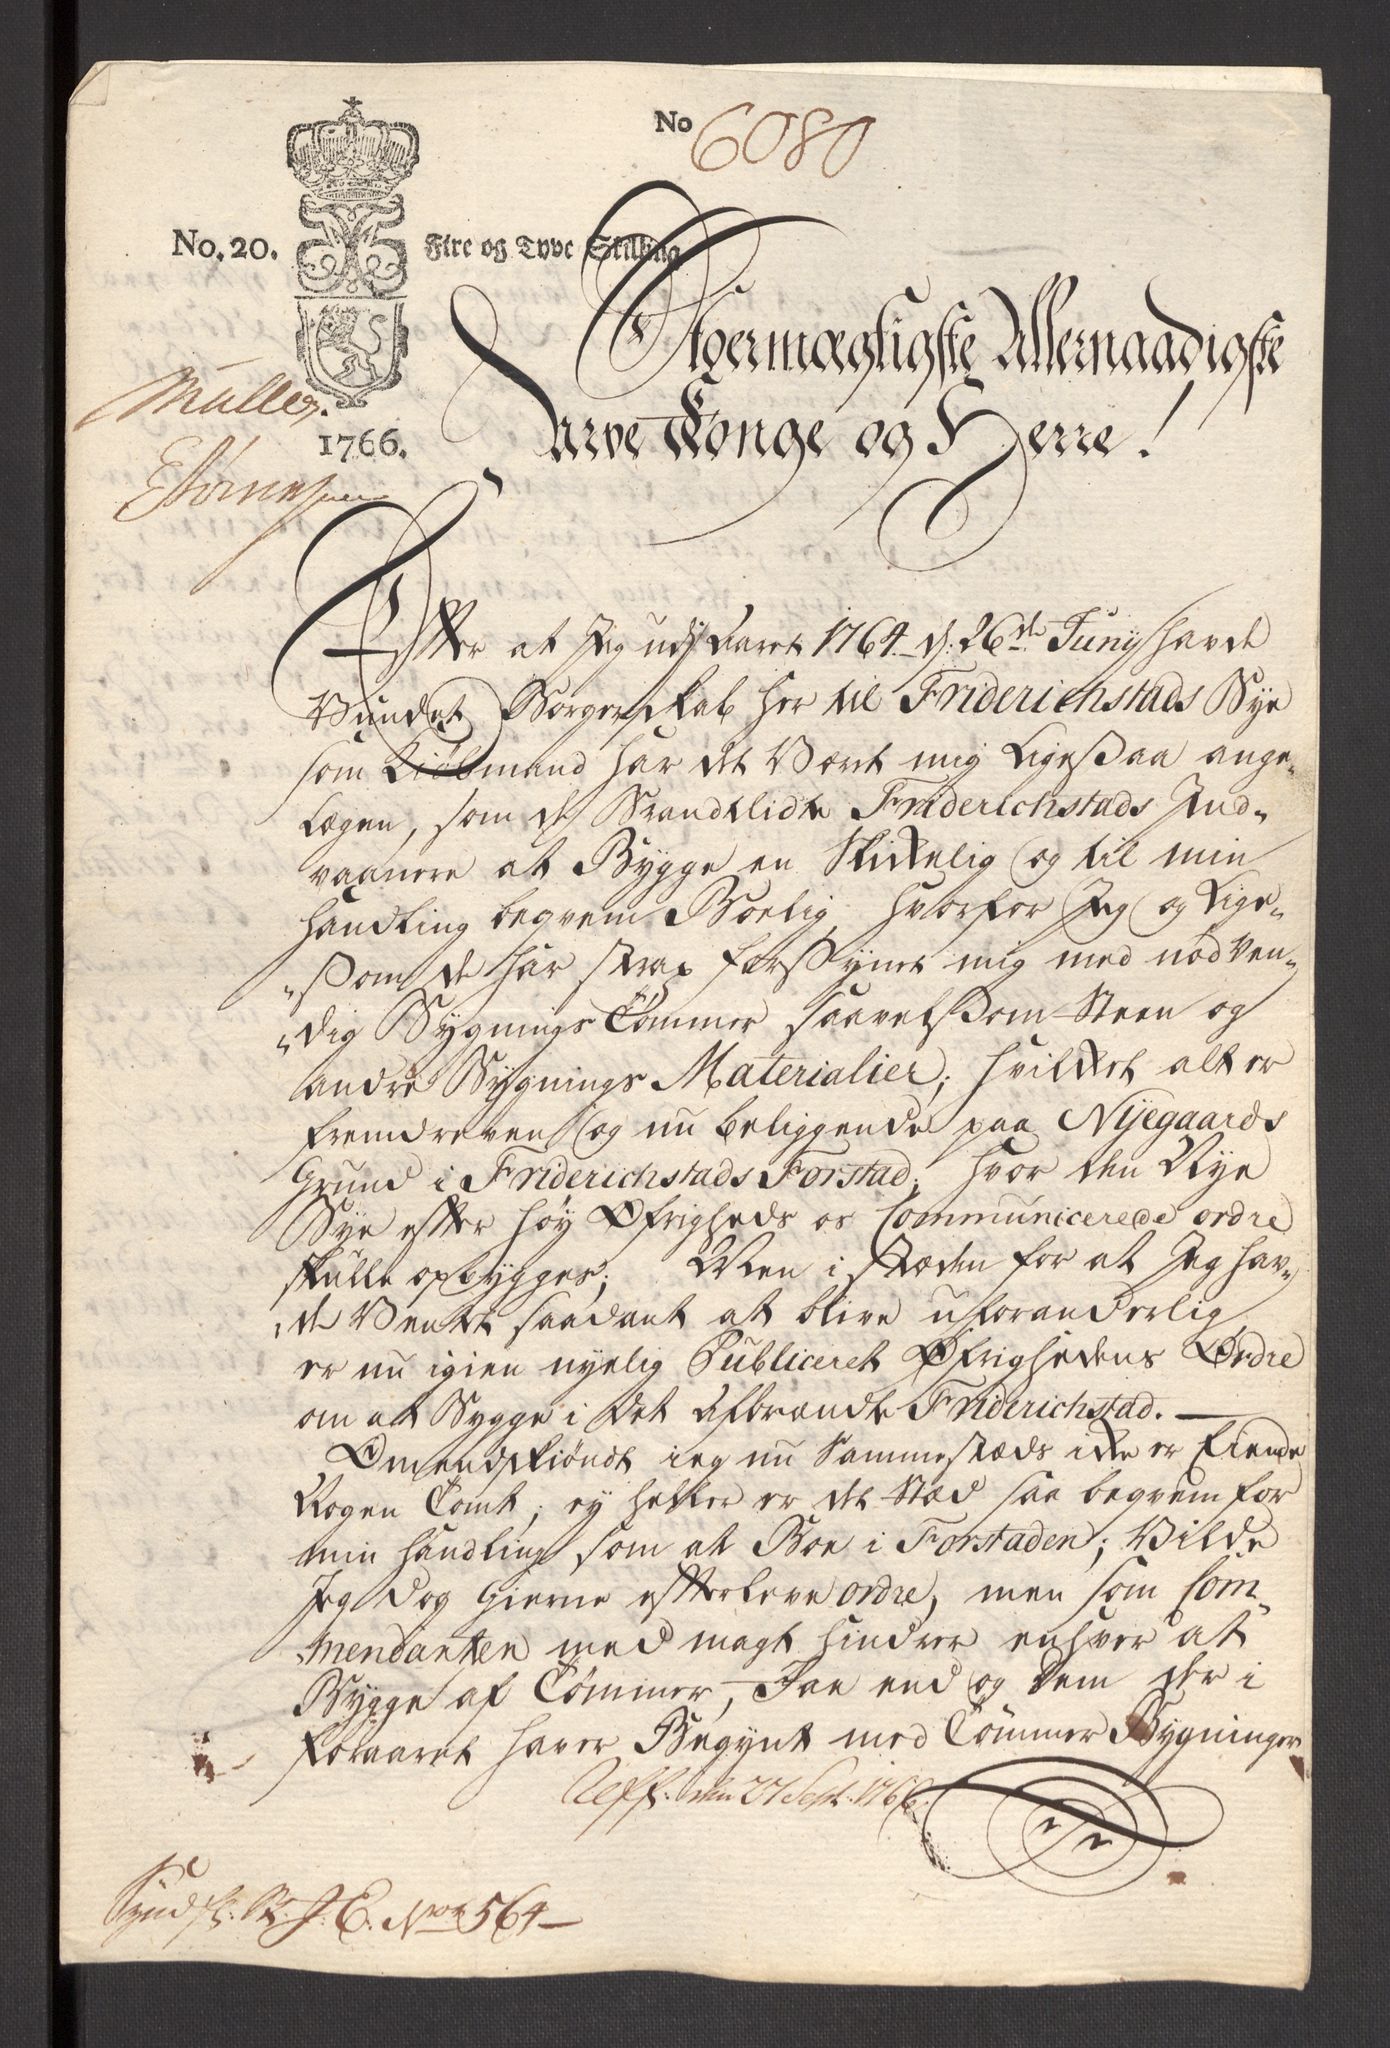 No 6080
No. 20. Fire og Tyve Skilling
Stoermægtigste Allernaadigste
Arve Konge og Herre!
Müller.
1766.
Efter at Jeg udj Aaret 1764 d: 26de Junij havde
Vundet Borgerskab her til Friderichstads Bye
som Kiøbmand har det Været mig Ligesaa ange¬
Lægen, som de Brandtlidte Friderichstads Ind¬
vaanere at Bygge en Skikkelig og til min
handling beqvem Boelig, hvorfor Jeg og Lige¬
„som de har strax forsynet mig med nødven¬
„dig Bygnings Tømmer saavelsom Steen og
andre Bygnings Materialier; hvilket alt er
fremdreven og nu beliggende paa Nyegaards
Grund i Friderichstads Forstad; hvor den Nye
Bye efter høy Øfrigheds os Communicerede ordre
skulle opbygges; Men i stæden for at Jeg hav¬
„de Ventet saadant at blive uforanderlig
er nu igien nyelig Publiceret Øfrighedens Ordre
om at Bygge i det Afbrændte Friderichstad. —
Omendskiøndt ieg nu Sammestæds ikke er Eiende
Nogen Tomt; ey heller er det Stæd saa beqvem for
min handling som at Boe i Forstaden; Vilde
Jeg dog Gierne efterleve ordre, men som Com¬
„mendanten med magt hindrer enhver at
Bygge af Tømmer, Jaa end og dem der i
Foraaret haver Begynt med Tømmer Bygninger
Reff. den 27 Sept. 1766.
564